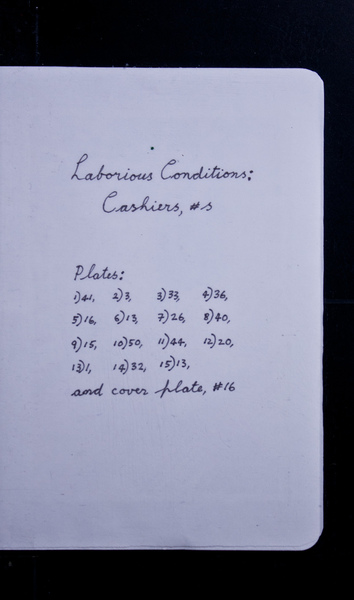 Laborious Conditions:
Cashiers, #s
Plates:
1)41, 2)3, 3)33, 4)36,
5)16, 6)13, 7)26, 8)40,
9)15, 10)50, 11)44, 12)20,
13)1, 14)32, 15)13,
and cover plate, #16